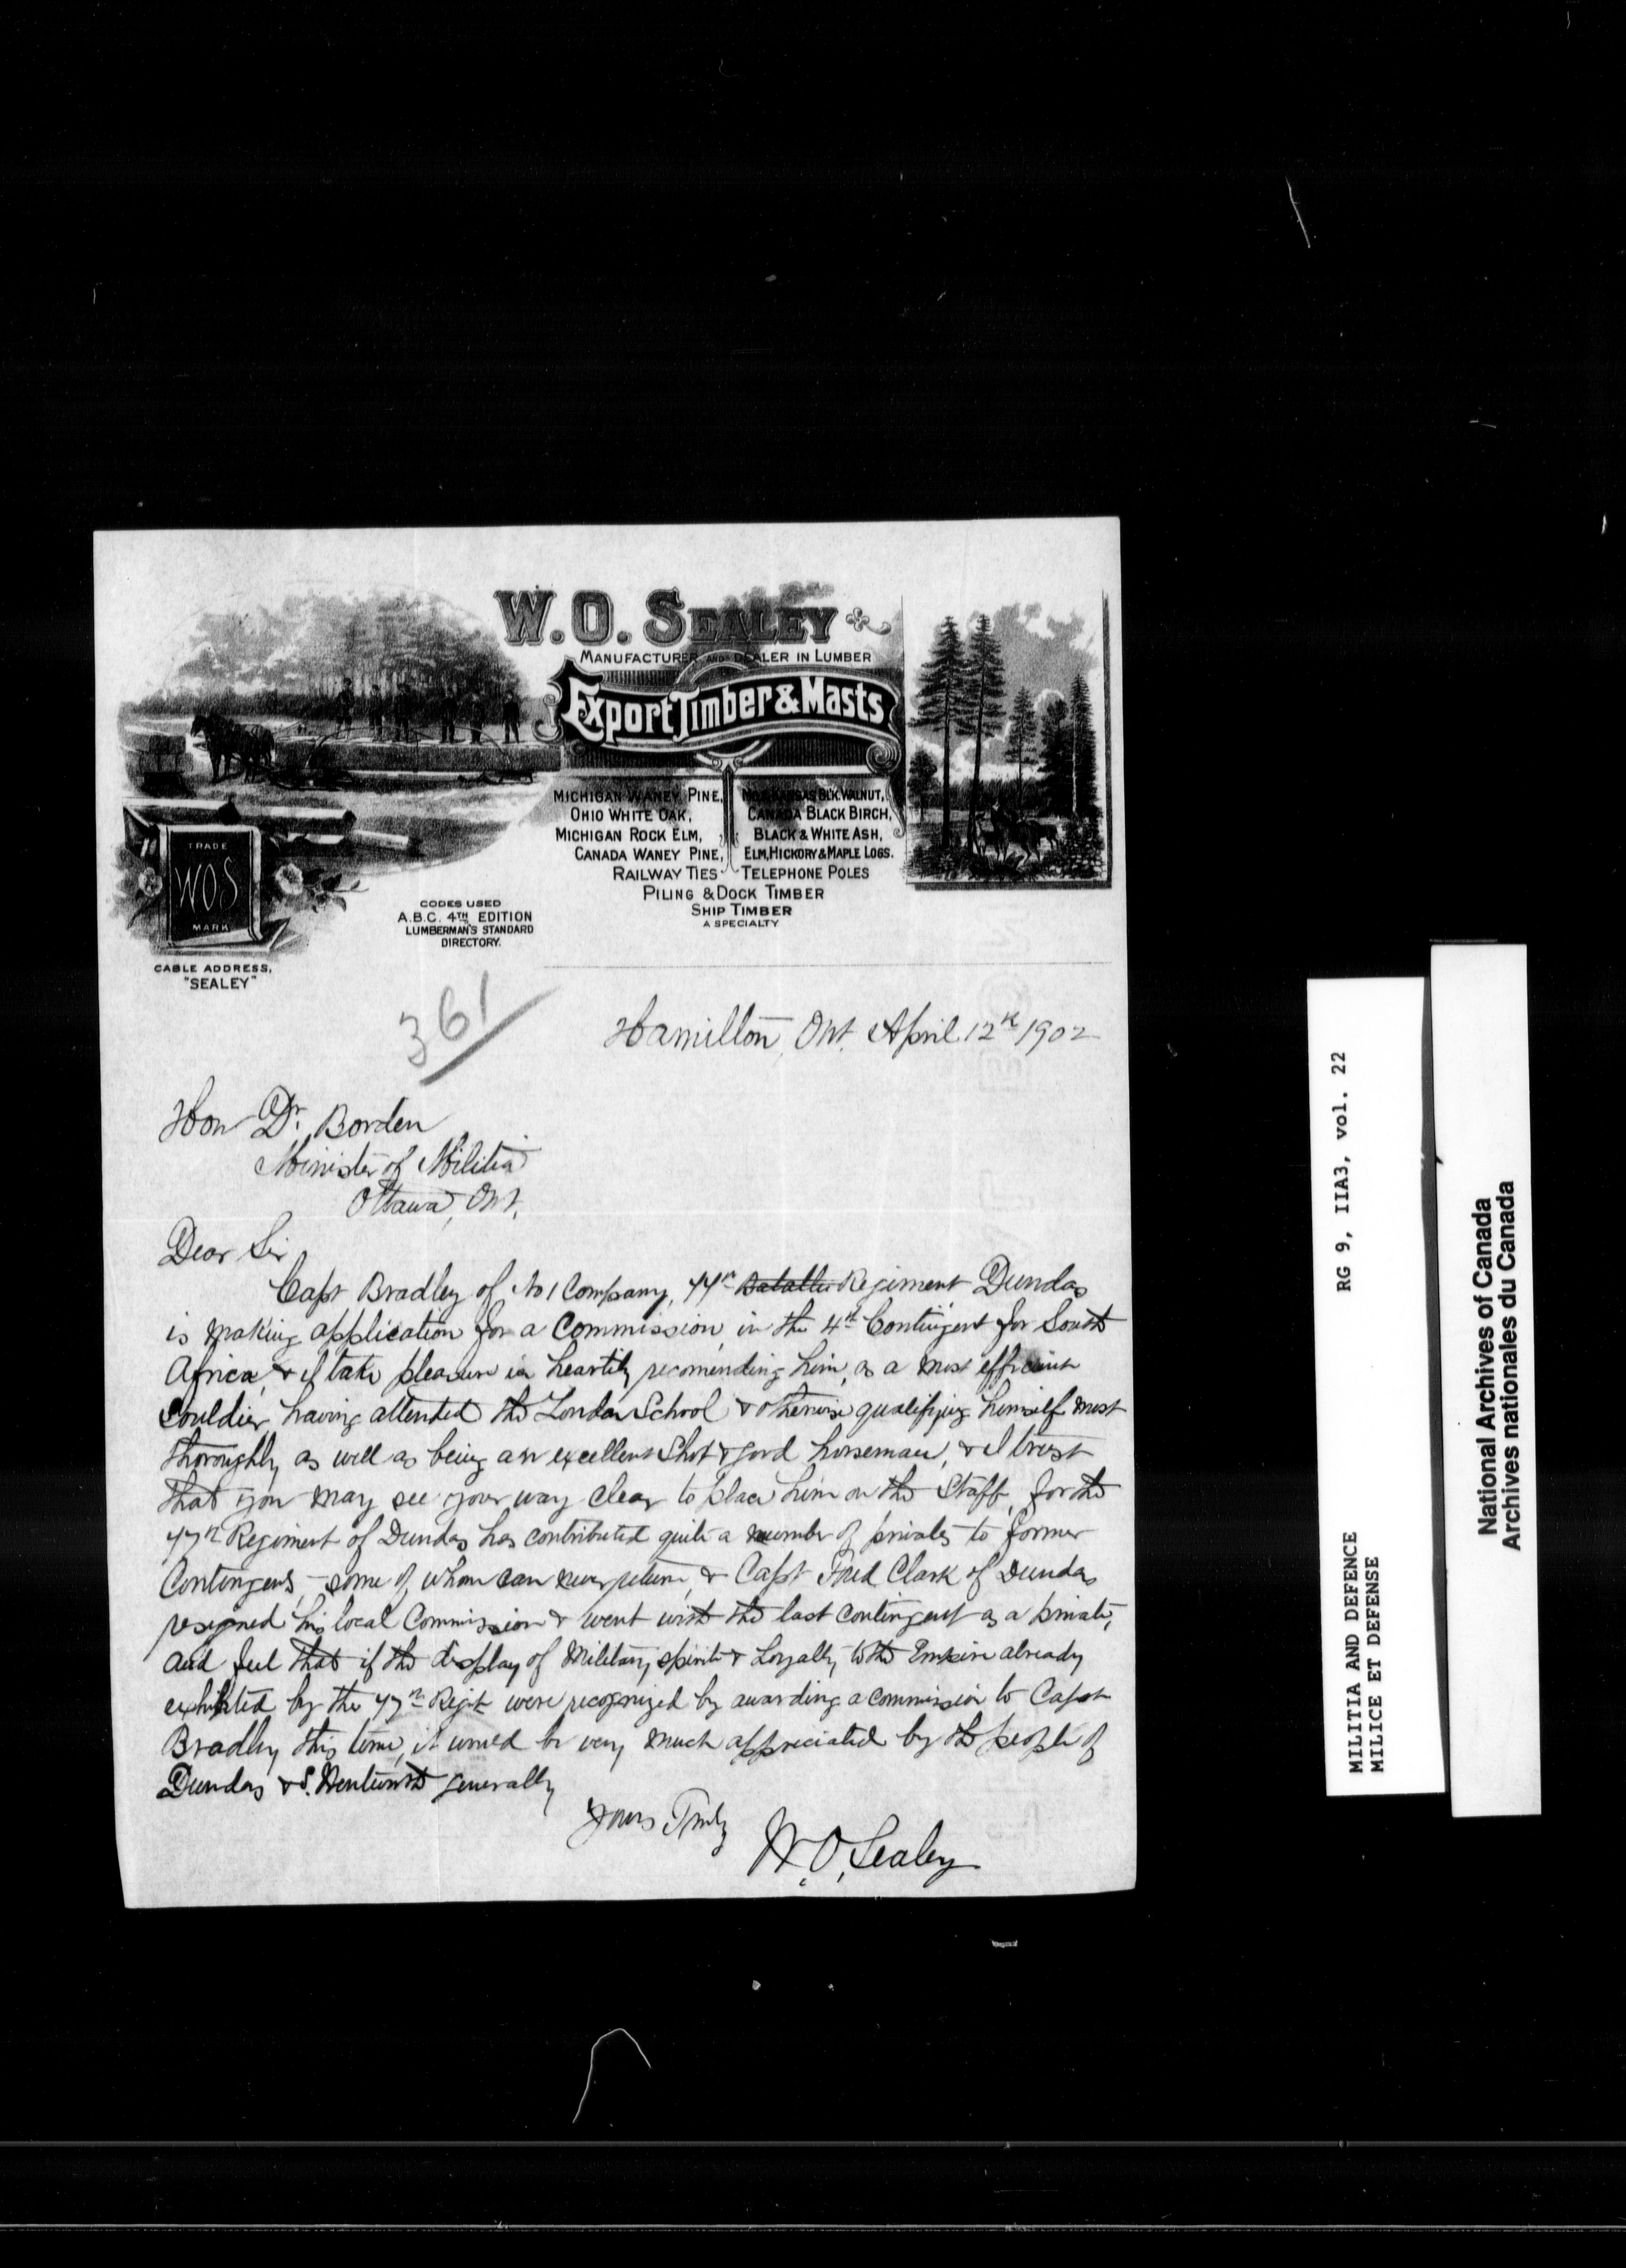 W. O. SEALEY
MANUFACTURER AND DEALER IN LUMBER
Export Timber & Masts
MICHIGAN WANEY PINE,
OHIO WHITE OAK,
MICHIGAN ROCK ELM,
CANADA WANEY PINE,
RAILWAY TIES
BLK. WALNUT,
CANADA BLACK BIRCH,
BLACK & WHITE ASH,
ELM, HICKORY & MAPLE LOGS.
TELEPHONE POLES
PILING & DOCK TIMBER
SHIP TIMBER
A SPECIALTY
TRADE
WOS
MARK
CODES USED
A.B.C. 4TH EDITION
LUMBERMAN'S STANDARD
DIRECTORY.
CABLE ADDRESS,
"SEALEY"
361
Hamilton, Ont. April 12th 1902
Hon Dr. Borden
Minister of Militia
Ottawa, Ont.
Dear Sir
Capt Bradley of No 1 Company, 77th Regiment Dundas
is making application for a Commission in the 4th Contingent for South
Africa, & I take pleasure in heartily recomending him, as a most efficient
Souldier, having attended the London School & otherwise qualifying himself most
thoroughly, as well as being an excellent Shot & good horseman, & I trust
that you may see your way clear to place him on the Staff, for the
77th Regiment of Dundas has contributed quite a number of privates to former
Contingens, - some of whom can never return, & Capt Fred Clark of Dundas
resigned his local Commission & went with the last contingent as a private,
and feel that if the display of Military spirit & Loyalty to the Empire already
exhibited by the 77th Regt were recognized by awarding a commission to Capt
Bradley this time, it would be very much appreciated by the people of
Dundas & S. Wentworth generally
Yours Truly
W. O. Sealey
MILITIA AND DEFENCE RG 9, IIA3, vol. 22
MILICE ET DEFENSE
National Archives of Canada
Archives nationales du Canada